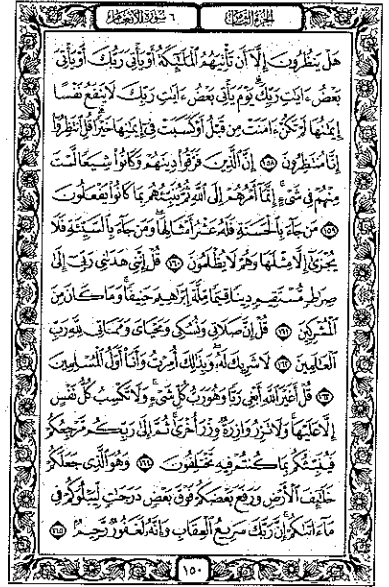 الجزء الثامن
٦ سورة الأنعام
هَلْ يَنظُرُونَ إِلَّا أَن تَأْتِيَهُمُ الْمَلَٰٓئِكَةُ أَوْ يَأْتِىَ رَبُّكَ أَوْ يَأْتِىَ
بَعْضُ ءَايَٰتِ رَبِّكَ يَوْمَ يَأْتِى بَعْضُ ءَايَٰتِ رَبِّكَ لَا يَنفَعُ نَفْسًا
إِيمَٰنُهَا لَمْ تَكُنْ ءَامَنَتْ مِن قَبْلُ أَوْ كَسَبَتْ فِىٓ إِيمَٰنِهَا خَيْرًا قُلِ انتَظِرُوٓا۟
إِنَّا مُنتَظِرُونَ ١٥٨ إِنَّ الَّذِينَ فَرَّقُوا۟ دِينَهُمْ وَكَانُوا۟ شِيَعًا لَّسْتَ
مِنْهُمْ فِى شَىْءٍ إِنَّمَآ أَمْرُهُمْ إِلَى اللَّهِ ثُمَّ يُنَبِّئُهُم بِمَا كَانُوا۟ يَفْعَلُونَ
١٥٩ مَن جَآءَ بِالْحَسَنَةِ فَلَهُۥ عَشْرُ أَمْثَالِهَا وَمَن جَآءَ بِالسَّيِّئَةِ فَلَا
يُجْزَىٰٓ إِلَّا مِثْلَهَا وَهُمْ لَا يُظْلَمُونَ ١٦٠ قُلْ إِنَّنِى هَدَىٰنِى رَبِّىٓ إِلَىٰ
صِرَٰطٍ مُّسْتَقِيمٍ دِينًا قِيَمًا مِّلَّةَ إِبْرَٰهِيمَ حَنِيفًا وَمَا كَانَ مِنَ
الْمُشْرِكِينَ ١٦١ قُلْ إِنَّ صَلَاتِى وَنُسُكِى وَمَحْيَاىَ وَمَمَاتِى لِلَّهِ رَبِّ
الْعَٰلَمِينَ ١٦٢ لَا شَرِيكَ لَهُۥ وَبِذَٰلِكَ أُمِرْتُ وَأَنَا۠ أَوَّلُ الْمُسْلِمِينَ
١٦٣ قُلْ أَغَيْرَ اللَّهِ أَبْغِى رَبًّا وَهُوَ رَبُّ كُلِّ شَىْءٍ وَلَا تَكْسِبُ كُلُّ نَفْسٍ
إِلَّا عَلَيْهَا وَلَا تَزِرُ وَازِرَةٌ وِزْرَ أُخْرَىٰ ثُمَّ إِلَىٰ رَبِّكُم مَّرْجِعُكُمْ
فَيُنَبِّئُكُم بِمَا كُنتُمْ فِيهِ تَخْتَلِفُونَ ١٦٤ وَهُوَ الَّذِى جَعَلَكُمْ
خَلَٰٓئِفَ الْأَرْضِ وَرَفَعَ بَعْضَكُمْ فَوْقَ بَعْضٍ دَرَجَٰتٍ لِّيَبْلُوَكُمْ فِى
مَآ ءَاتَىٰكُمْ إِنَّ رَبَّكَ سَرِيعُ الْعِقَابِ وَإِنَّهُۥ لَغَفُورٌ رَّحِيمٌ ١٦٥
١٥٠